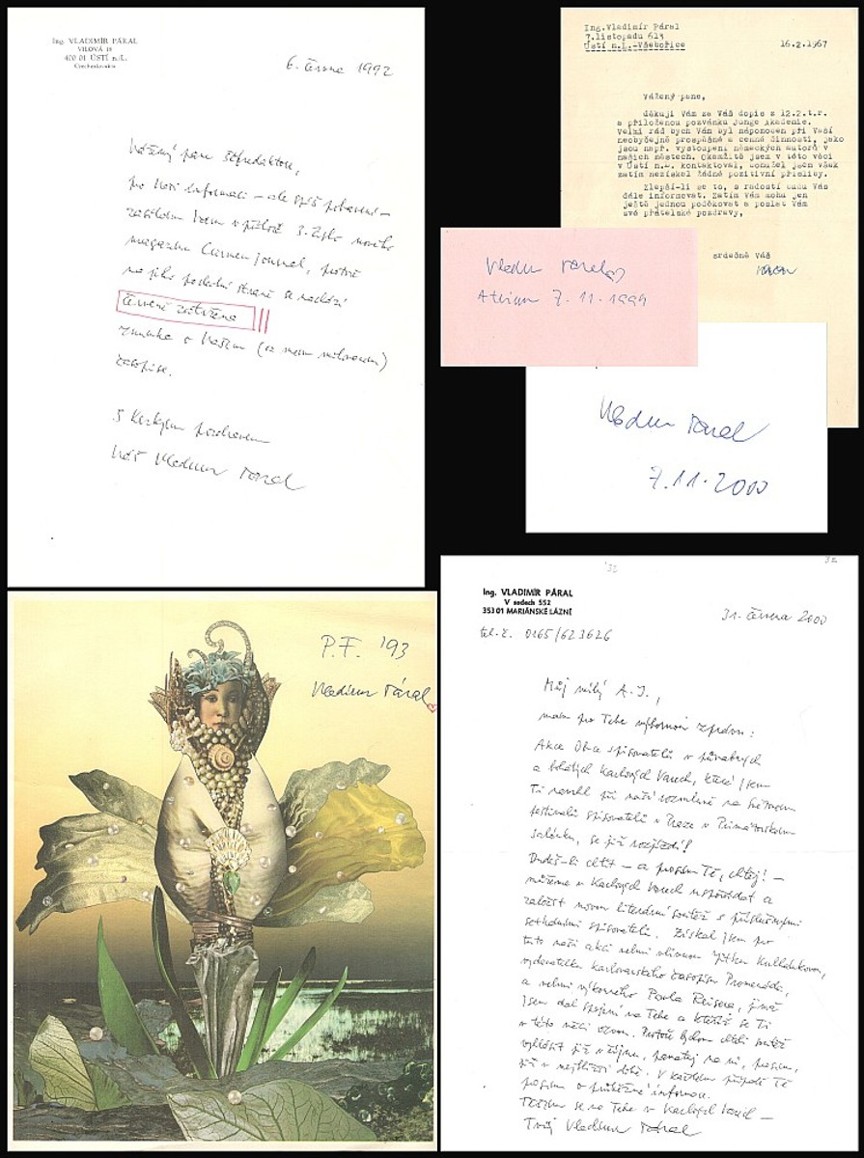 Ing. VLADIMÍR PÁRAL
VILOVÁ 18
400 01 ÚSTÍ n./L.
Czechoslovakia
6. června 1992
Vážený pane šéfredaktore,
pro Vaši informaci – ale spíš pobavení –
zasílám Vám v příloze 3. číslo nového
magazínu Carmen Journal, protože
na jeho poslední straně se nachází
červeně
zmínka o Vašem (a mém milovaném)
časopise.
S hezkým pozdravem
Váš Vladimír Páral
Ing.Vladimír Páral
7.listopadu 613
Ústí n.L.-Všebořice
16.2.1967
Vážený pane,
děkuji Vám za Váš dopis z 12.2.t.r.
a přiloženou pozvánku Junge Akademie.
Velmi rád bych Vám byl nápomocen při Vaší
neobyčejně prospěšné a cenné činnosti, jako
jsou např. vystoupení německých autorů v
našich městech. Okamžitě jsem v této věci
v Ústí n.L. kontaktoval, bohužel jsem však
zatím nezískal žádné pozitivní přísliby.
Zlepší-li se to, s radostí budu Vás
dále informovat. Zatím Vám mohu jen
ještě jednou poděkovat a poslat Vám
své přátelské pozdravy,
srdečně Váš
Páral
Vladimír Páral
Atrium 7.11.1999
Vladimír Páral
7.11.2000
P.F. '93
Vladimír Páral
'32
Ing. VLADIMÍR PÁRAL
V sadech 552
353 01 MARIÁNSKÉ LÁZNĚ
tel.č. 0165/623626
31. června 2000
Můj milý A.J.,
mám pro Tebe výbornou zprávu:
Akce Obce spisovatelů v půvabných
a bohatých Karlových Varech, které jsem
Ti navrhl při naší rozmluvě na Světovém
festivalu spisovatelů v Praze v Primátorském
salónku, se již rozjíždí!
Budeš-li chtít – a prosím Tě, chtěj! –
můžeme v Karlových Varech uspořádat a
založit novou literární soutěž s příslušnými
setkáními spisovatelů. Získal jsem pro
tuto naši akci velmi vlivnou Jitku
vydavatelku karlovarského časopisu Promenáda,
a velmi výkonného Pavla Reisera, jimž
jsem dal spojení na Tebe a kteříž se Ti
v této věci ozvou. Protože bychom chtěli soutěž
vyhlásit již v říjnu, pamatuj na ni, prosím,
již v nejbližší době. V každém případě Tě
prosím o průběžné informace.
Těším se na Tebe v Karlových Varech –
Tvůj Vladimír Páral